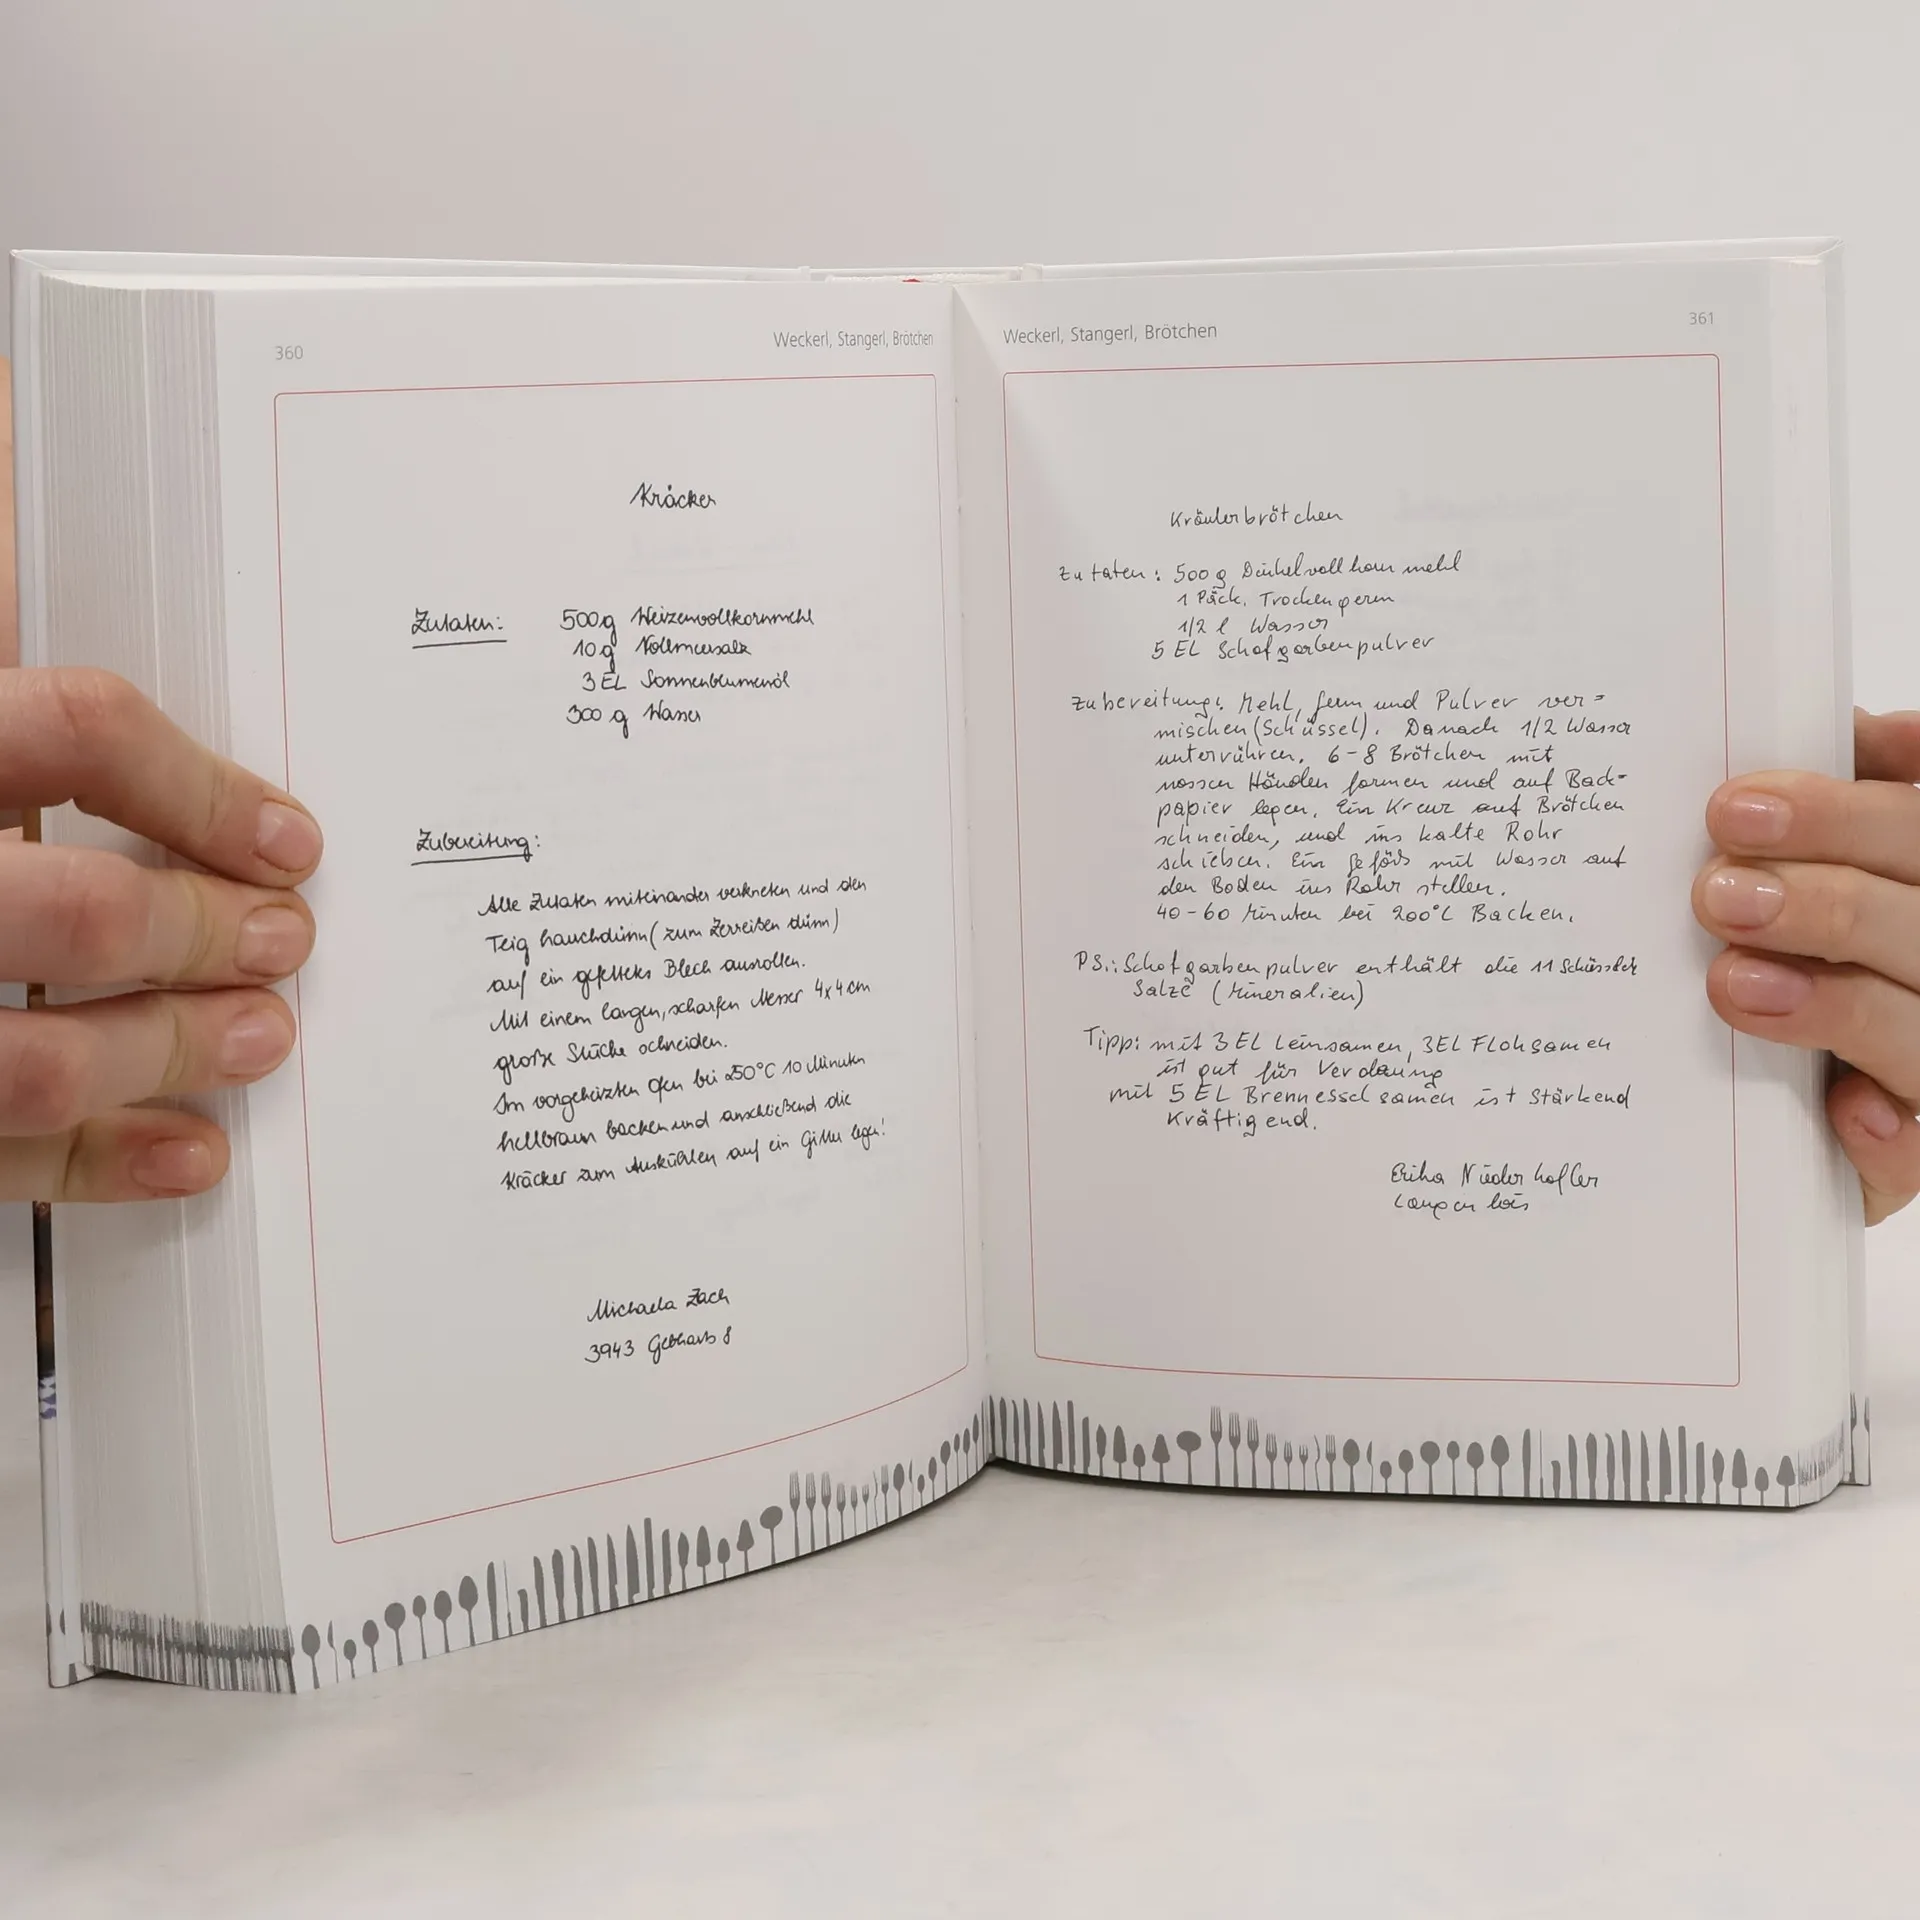 360
Weckerl, Stangerl, Brötchen
Kräcker
Zutaten: 500g Weizenvollkornmehl
10g Vollmeersalz
3 EL Sonnenblumenöl
300 g Wasser
Zubereitung:
Alle Zutaten miteinander verkneten und den
Teig hauchdünn (zum Zerreißen dünn)
auf ein gefettetes Blech ausrollen.
Mit einem langen, scharfen Messer 4x4 cm
große Stücke schneiden.
Im vorgeheizten Ofen bei 250°C 10 Minuten
hellbraun backen und anschließend die
Kräcker zum Auskühlen auf ein Gitter legen!
Michaela Zach
3943 Gebharts 8
Weckerl, Stangerl, Brötchen
361
Kräuterbrötchen
Zutaten: 500 g Dinkelvollkornmehl
1 Päck. Trockengerm
1/2 l Wasser
5 EL Schafgarbenpulver
Zubereitung: Mehl, Germ und Pulver ver=
mischen (Schüssel). Danach 1/2 Wasser
unterrühren. 6-8 Brötchen mit
nassen Händen formen und auf Back=
papier legen. Ein Kreuz auf Brötchen
schneiden, und ins kalte Rohr
schieben. Ein Gefäß mit Wasser auf
den Boden ins Rohr stellen.
40-60 Minuten bei 200°C Backen.
PS.: Schafgarbenpulver enthält die 11 Schüssler
Salze (Mineralien)
Tipp: mit 3 EL Leinsamen, 3EL Flohsamen
ist gut für Verdauung
mit 5 EL Brennesselsamen ist Stärkend
Kräftigend.
Erika Niederhofler
Langenlois